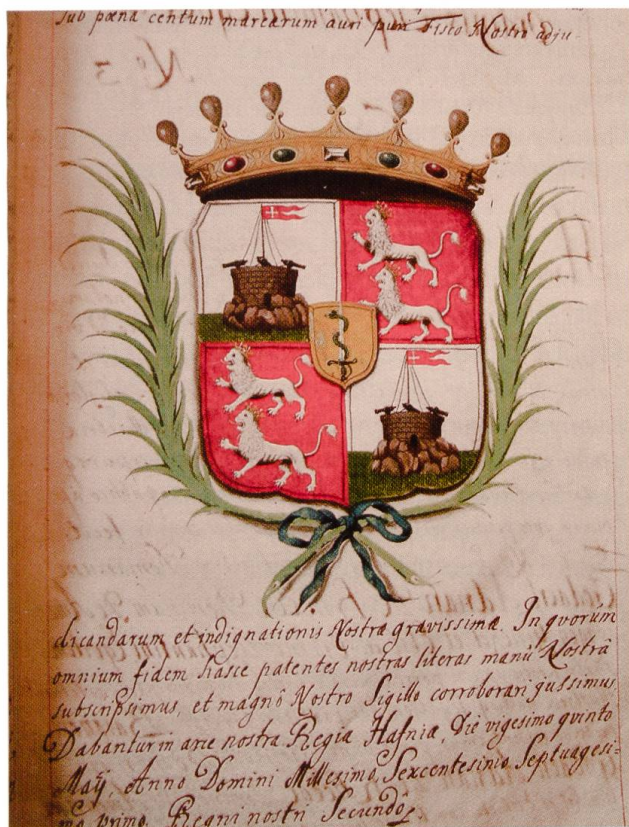 sub pœna centum marcarum auri puri Fisco Nostro adju-
No 3
dicandarum et indignationis Nostræ gravissimæ. In qvorum
omnium fidem hasce patentes nostras literas manu Nostrâ
subscripsimus, et magnô Nostro Sigillo corroborari jussimus
Dabantur in arce nostra Regia Hafniæ, Die vigesimo quinto
Maÿ, Anno Domini Millesimo, Sexcentesimo Septuagesi-
mo primo, Regni nostri Secundô,